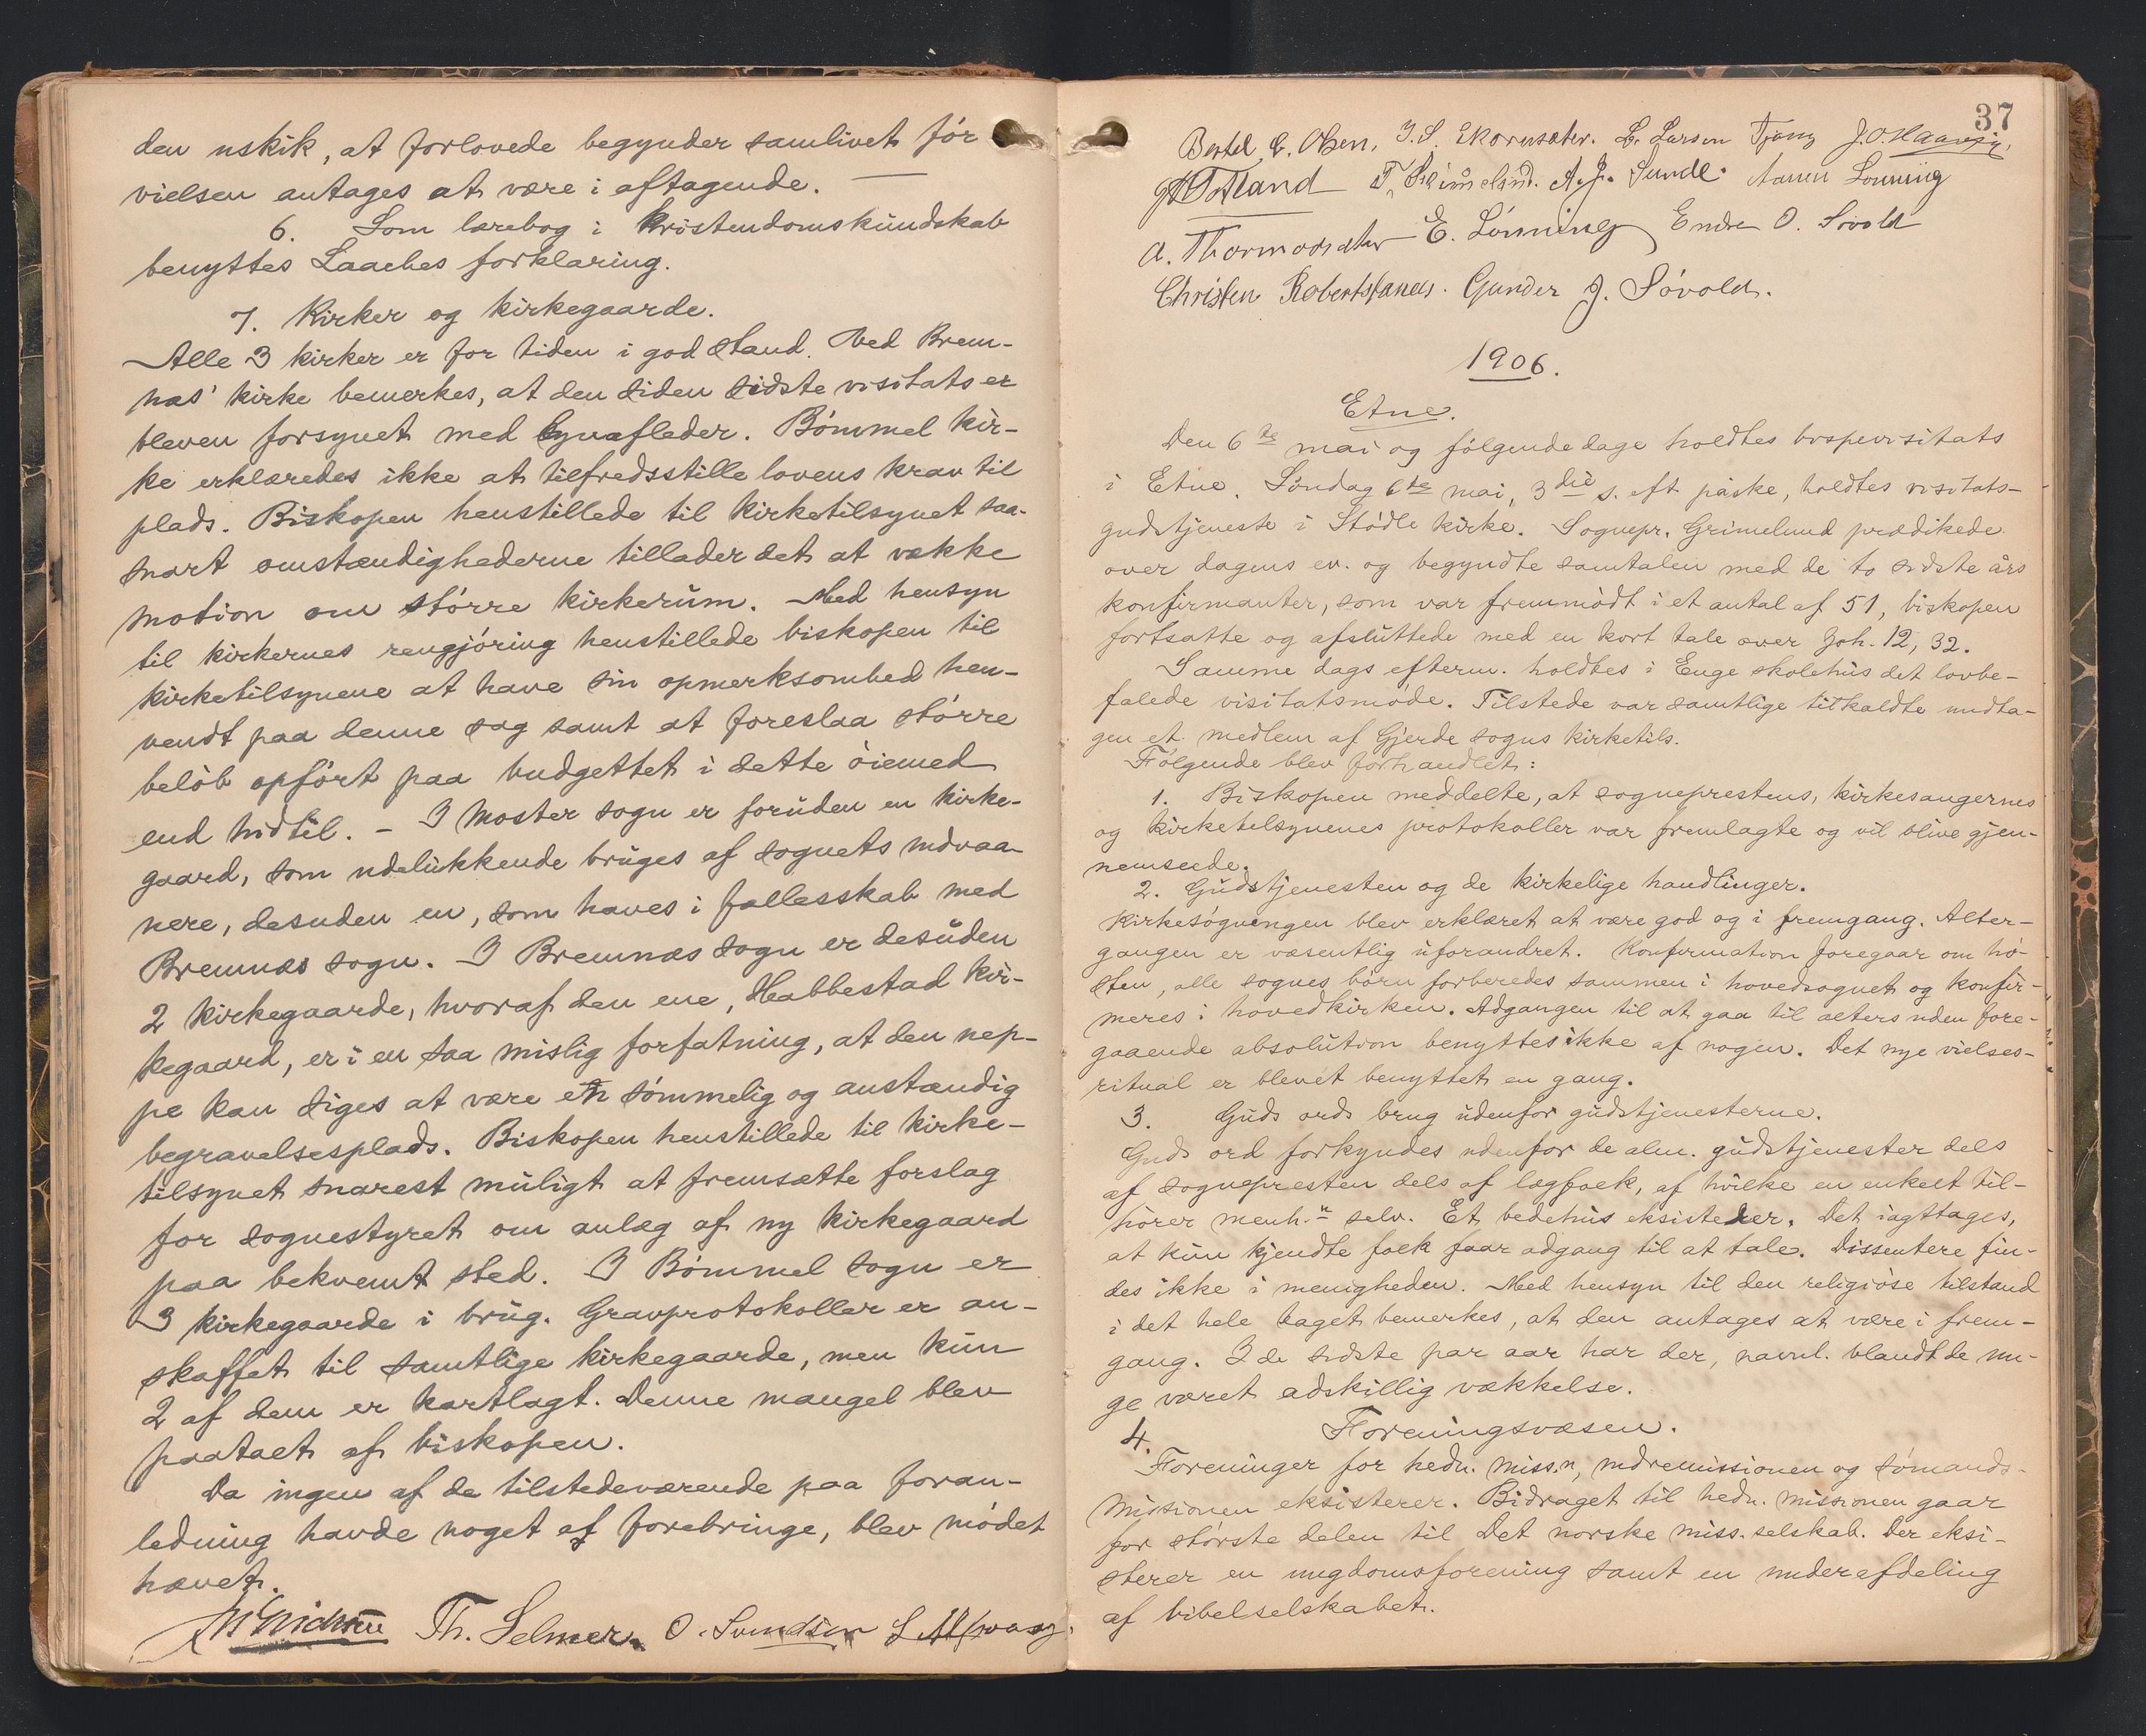 den uskik, at forlovede begynder samlivet før
vielsen antages at være i aftagende. —
6. Som lærebog i kristendomskundskab
benyttes Laaches forklaring.
7. Kirker og kirkegaarde.
Alle 3 kirker er for tiden i god stand. Ved Brem-
næs' kirke bemerkes, at den siden sidste visitats er
bleven forsynet med lynafleder. Bømmel kir-
ke erklæredes ikke at tilfredsstille lovens krav til
plads. Biskopen henstillede til kirketilsynet saa-
snart omstændighederne tillader det at vække
motion om større kirkerum. Med hensyn
til kirkernes rengjøring henstillede biskopen til
kirketilsynene at have sin opmerksomhed hen-
vendt paa denne sag samt at foreslaa større
beløb opført paa budgettet i dette øiemed
end hidtil. – I Moster sogn er foruden en kirke-
gaard, som udelukkende bruges af sognets indvaa-
nere, desuden en, som haves i fællesskab med
Bremnæs sogn. I Bremnæs sogn er desuden
2 kirkegaarde, hvoraf den ene, Habbestad kir-
kegaard, er i en saa mislig forfatning, at den nep-
pe kan siges at være en sømmelig og anstændig
begravelsesplads. Biskopen henstillede til kirke-
tilsynet snarest muligt at fremsætte forslag
for sognestyret om anlæg af ny kirkegaard
paa bekvemt sted. I Bømmel sogn er
3 kirkegaarde i brug. Gravprotokoller er an-
skaffet til samtlige kirkegaarde, men kun
2 af dem er kartlagt. Denne mangel blev
paatalt af biskopen.
Da ingen af de tilstedeværende paa foran-
ledning havde noget at forebringe, blev mødet
hævet.
Th. Selmer. O. Svendsen
37
Bertel E. Olsen, J. S. Skornsæter. L. Larsen Tjong J. O. Haavig,
A. J. Sunde. Aamu Lønning
A. Thormodsæter E. Lønning Endre O. Søvold
Christen Robertstanes. Gunder J. Søvold.
1906.
Etne.
Den 6te mai og følgende dage holdtes bispevisitats
i Etne. Søndag 6te mai, 3die s. eft påske, holdtes visitats-
gudstjeneste i Stødle kirke. Sognepr. Grimelund prædikede
over dagens ev. og begyndte samtalen med de to sidste års
konfirmanter, som var fremmødt i et antal af 51, biskopen
fortsatte og afsluttede med en kort tale over Joh. 12, 32.
Samme dags efterm. holdtes i Enge skolehus det lovbe-
falede visitatsmøde. Tilstede var samtlige tilkaldte undta-
gen et medlem af Gjerde sogns kirketils.
Følgende blev forhandlet:
1. Biskopen meddelte, at sogneprestens, kirkesangernes
og kirketilsynenes protokoller var fremlagte og vil blive gjen-
nemseede.
2. Gudstjenesten og de kirkelige handlinger.
Kirkesøgningen blev erklæret at være god og i fremgang. Alter-
gangen er væsentlig uforandret. Konfirmation foregaar om hø-
sten, alle sognes børn forberedes sammen i hovedsognet og konfir-
meres i hovedkirken. Adgangen til at gaa til alters uden fore-
gaaende absolution benyttes ikke af nogen. Det nye vielses-
ritual er blevet benyttet en gang.
3. Guds ords brug udenfor gudstjenesterne.
Guds ord forkyndes udenfor de alm. gudstjenester dels
af sognepresten dels af lægfolk, af hvilke en enkelt til-
hører menh.n selv. Et bedehus eksisterer. Det iagttages,
at kun kjendte folk faar adgang til at tale. Dissentere fin-
des ikke i menigheden. Med hensyn til den religiøse tilstand
i det hele taget bemerkes, at den antages at være i frem-
gang. I de sidste par aar har der, navnl. blandt de un-
ge været adskillig vækkelse.
4. Foreningsvæsen.
Foreninger for hedn. miss.n, indremissionen og sømands-
missionen eksisterer. Bidraget til hedn. missionen gaar
for største delen til Det norske miss. selskab. Der eksi-
sterer en ungdomsforening samt en underafdeling
af bibelselskabet.